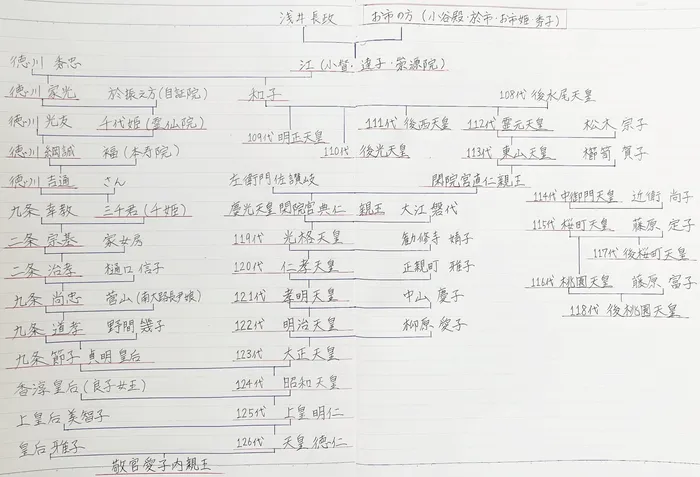 浅井長政 お市の方(小谷殿・於市・お市姫 秀子)
徳川 秀忠 江(小督・達子・崇源院)
徳川 家光 於振之方(自証院) 和子 108代後水尾天皇
徳川 光友 千代姫(霊仙院) 111代 後西天皇 112代 霊元天皇 松木 宗子
109代 明正天皇
徳川 綱誠 福(本寿院) 110代 後光天皇 113代 東山天皇 櫛笥 賀子
徳川 吉通 さん 左衛門佐讃岐 閑院宮直仁親王
114代 中御門天皇 近衛 尚子
九条 幸教 三千君(千姫) 慶光天皇 閑院宮典仁 親王 大江 磐代
115代 桜町天皇 藤原 定子
二条 宗基 家女房 119代 光格天皇 勧修寺 婧子
117代 後桜町天皇
二条 治孝 樋口 信子 120代 仁孝天皇 正親町 雅子
116代 桃園天皇 藤原 富子
九条 尚忠 菅山(南大路長尹娘) 121代 孝明天皇 中山 慶子
118代 後桃園天皇
九条 道孝 野間 幾子 122代 明治天皇 柳原 愛子
九条 節子 貞明皇后 123代 大正天皇
香淳皇后(良子女王) 124代 昭和天皇
上皇后 美智子 125代 上皇 明仁
皇后 雅子 126代 天皇 徳仁
敬宮愛子内親王